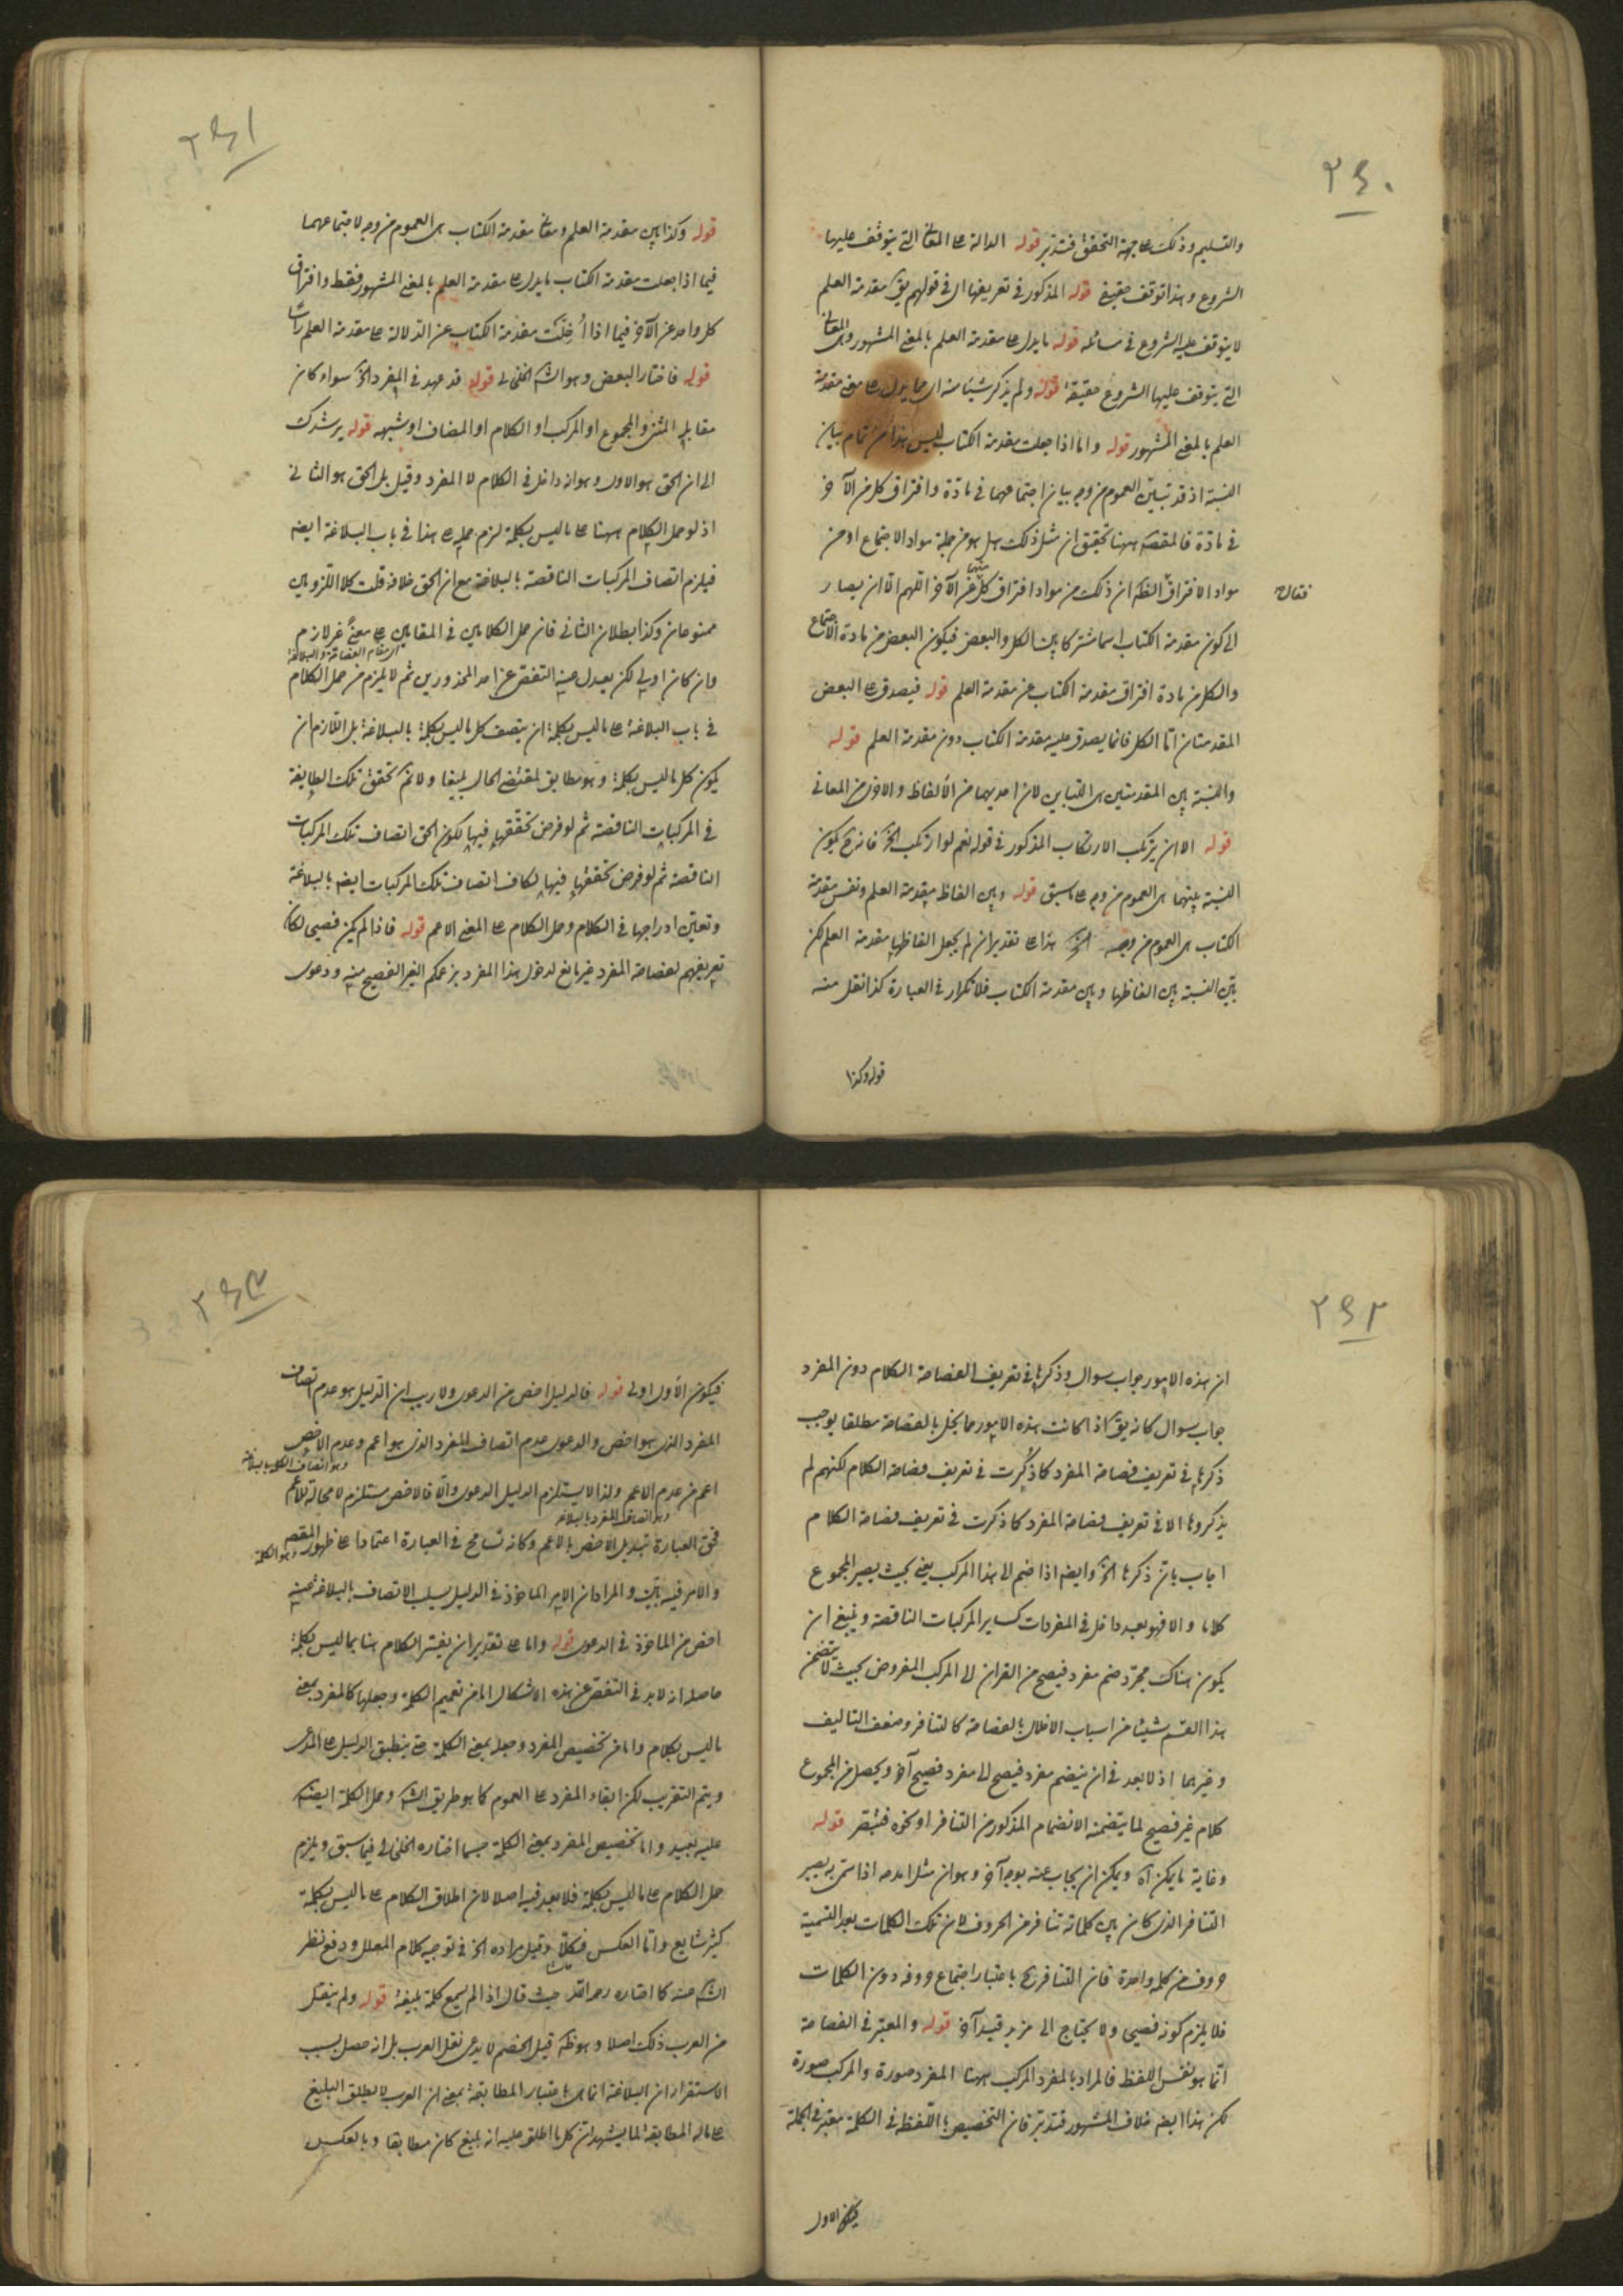 ٢٤٠
والتسليم وذلك على جهة التحقق فتدبر قوله الدالة على المعانى التى يتوقف عليها
الشروع وهذا توقف حقيقى قوله المذكور فى تعريفها اى فى قولهم يق مقدمة العلم
لا يتوقف عليه الشروع فى مسائله قوله ما يدل على مقدمة العلم بالمعنى المشهور وهى المعانى
التى يتوقف عليها الشروع حقيقة قوله ولم يذكر شيئا منه اى ما يدل على معنى مقدمة
العلم بالمعنى المشهور قوله واما اذا جعلت مقدمة الكتاب ليس هذا من تمام بيان
النسبة اذ قد تبين العموم من وجه ببيان اجتماعهما فى مادة وافتراق كل من الآخر
فى مادة فالمقصد ههنا تحقيق ان مثل ذلك هل هو من جملة مواد الاجتماع او من
مواد الافتراق الظ ان ذلك من مواد افتراق كل منهما عن الآخر اللهم الا ان يصار
فتأمل
الى كون مقدمة الكتاب اسما مشتركا بين الكل والبعض فيكون البعض من مادة الاجتماع
والكل من مادة افتراق مقدمة الكتاب عن مقدمة العلم قوله فيصدق على البعض
المقدمتان اما الكل فانما يصدق عليه مقدمة الكتاب دون مقدمة العلم قوله
والنسبة بين المقدمتين هى التباين لان احديهما من الالفاظ والاخرى من المعانى
قوله الا ان يرتكب الارتكاب المذكور فى قوله نعم لو ارتكب الخ فانه ح يكون
النسبة بينهما هى العموم من وجه على ما سبق قوله وبين الفاظ مقدمة العلم ونفس مقدمة
الكتاب هى العموم من وجه الخ هذا على تقدير ان لم يجعل الفاظها مقدمة العلم لكن
بين النسبة بين الفاظها وبين مقدمة الكتاب فلا تكرار فى العبارة كذا نقل منه
قوله وكذا
٢٤١
قوله وكذا بين مقدمة العلم ومعانى مقدمة الكتاب هى العموم من وجه لاجتماعهما
فيما اذا جعلت مقدمة الكتاب ما يدل على مقدمة العلم بالمعنى المشهور فقط وافتراق
كل واحد عن الآخر فيما اذا اُخليت مقدمة الكتاب عن الدلالة على مقدمة العلم رأسا
قوله فاختار البعض وهو الش الخلخالى قوله قد عهد فى المفرد الخ سواء كان
مقابل المثنى والمجموع او المركب او الكلام او المضاف او شبهه قوله يرشدك
الى ان الحق هو الاول وهو انه داخل فى الكلام لا المفرد وقيل بل الحق هو الثانى
اذ لو حمل الكلام ههنا على ما ليس بكلمة لزم حمله على هذا فى باب البلاغة ايضه
فيلزم اتصاف المركبات الناقصة بالبلاغة مع ان الحق خلافه قلت كلا اللزومين
ممنوعان وكذا بطلان الثانى فان حمل الكلامين فى المقامين على معنى غير لازم
اى مقام الفصاحة والبلاغة
وان كان اولى لكن يعدل عنه التفصى عن احد المحذورين ثم لا يلزم من حمل الكلام
فى باب البلاغة على ما ليس بكلمة ان يتصف كل ما ليس بكلمة بالبلاغة بل اللازم ان
يكون كل ما ليس بكلمة وهو مطابق لمقتضى الحال بليغا ولا نم تحقق تلك المطابقة
فى المركبات الناقصة ثم لو فرض تحققها فيها لكون الحق اتصاف تلك المركبات
الناقصة ثم لو فرض تحققها فيها لكان اتصاف تلك المركبات ايضه بالبلاغة
وتعين ادراجها فى الكلام وحمل الكلام على المعنى الاعم قوله فاذا لم يكن فصيحا لكان
تعريفهم لفصاحة المفرد غير مانع لدخول هذا المفرد بزعمكم الغير الفصيح فيه ودعوى
٢٤٢
ان هذه الامور جواب سوال وذكرها فى تعريف الفصاحة الكلام دون المفرد
جواب سوال كانه يق اذا كانت هذه الامور مما يخل بالفصاحة مطلقا يوجب
ذكرها فى تعريف فصاحة المفرد كما ذُكرت فى تعريف فصاحة الكلام لكنهم لم
يذكروها الا فى تعريف فصاحة المفرد كما ذكرت فى تعريف فصاحة الكلام
اجاب بان ذكرها الخ وايضه اذا ضم الى هذا المركب يعنى بحيث يصير المجموع
كلاما والا فهو بعد داخل فى المفردات كساير المركبات الناقصة وينبغى ان
يكون هناك مجرد ضم مفرد فصيح من القران الى المركب المفروض بحيث لا يتضمن
هذا القسم شيئا من اسباب الاخلال بالفصاحة كالتنافر وضعف التاليف
وغيرهما اذ لا بعد فى ان ينضم مفرد فصيح الى مفرد فصيح آخر ويحصل من المجموع
كلام غير فصيح لما يتضمنه الانضمام المذكور من التنافر او نحوه فتبصر قوله
وغاية ما يمكن اه ويمكن ان يجاب عنه بوجه آخر وهو ان مثل امدحه اذا سمى به يصير
التنافر الذى كان بين كلماته تنافرا من الحروف لان تلك الكلمات بعد التسمية
حروف من كلمة واحدة فان التنافر ح باعتبار اجتماع حروفه دون الكلمات
فلا يلزم كونه فصيحا ولا يحتاج الى مزيد قيد آخر قوله والمعتبر فى الفصاحة
انما هو نفس اللفظ فالمراد بالمفرد المركب ههنا المفرد صورة والمركب صورة
لكن هذا ايضه خلاف المشهور فتدبر فان التخصيص باللفظ فى الكلمة معتبر فى الجملة
فيكون الاول
٢٤٣
فيكون الاول اولى قوله فالدليل اخص من الدعوى ولا ريب ان الدليل هو عدم اتصاف
المفرد الذى هو اخص والدعوى عدم اتصاف المفرد الذى هو اعم وعدم الاخص
وهو اتصاف الكلمة بالبلاغة
اعم من عدم الاعم ولذا لا يستلزم الدليل الدعوى والا فالاخص مستلزم لا محالة للاعم
وهو اتصاف المفرد بالبلاغة
فحق العبارة تبديل الاخص بالاعم وكانه تسامح فى العبارة اعتمادا على ظهور المقصد
وهو الكلمة
والامر فيه بين والمراد ان الامر الماخوذ فى الدليل سلب الاتصاف بالبلاغة عنه
اخص من الماخوذ فى الدعوى قوله واما على تقدير ان يفسر الكلام هنا بما ليس بكلمة
حاصله انه لابد فى التفصى عن هذه الاشكال اما من تعميم الكلمة وجعلها كالمفرد بمعنى
ما ليس بكلام واما من تخصيص المفرد وجعله بمعنى الكلمة حتى ينطبق الدليل على المدعى
ويتم التقريب لكن ابقاء المفرد على العموم كما هو طريق الش وحمل الكلمة ايضه
عليه بعيد واما تخصيص المفرد بمعنى الكلمة حسبما اختاره الخلخالى فيما سبق ويلزم
حمل الكلام على ما ليس بكلمة فلا بعد فيه اصلا لان اطلاق الكلام على ما ليس بكلمة
كثير شايع واما العكس فكلا وقيل مراده الخ فى توجيه كلام المعلل ودفع نظر
الش عنه كما اختاره رحمه الله حيث قال اذ لم يسمع كلمة بليغة قوله ولم ينقل
من العرب ذلك اصلا وهو ظه قيل الخصم لا يدعى نقل العرب بل انه حصل بسبب
الاستقراء ان البلاغة انما هى باعتبار المطابقة بمعنى ان العرب لا يطلق البليغ
على ماله المطابقة الما يشهد ان كل ما اطلق عليه انه بليغ كان مطابقا وبالعكس